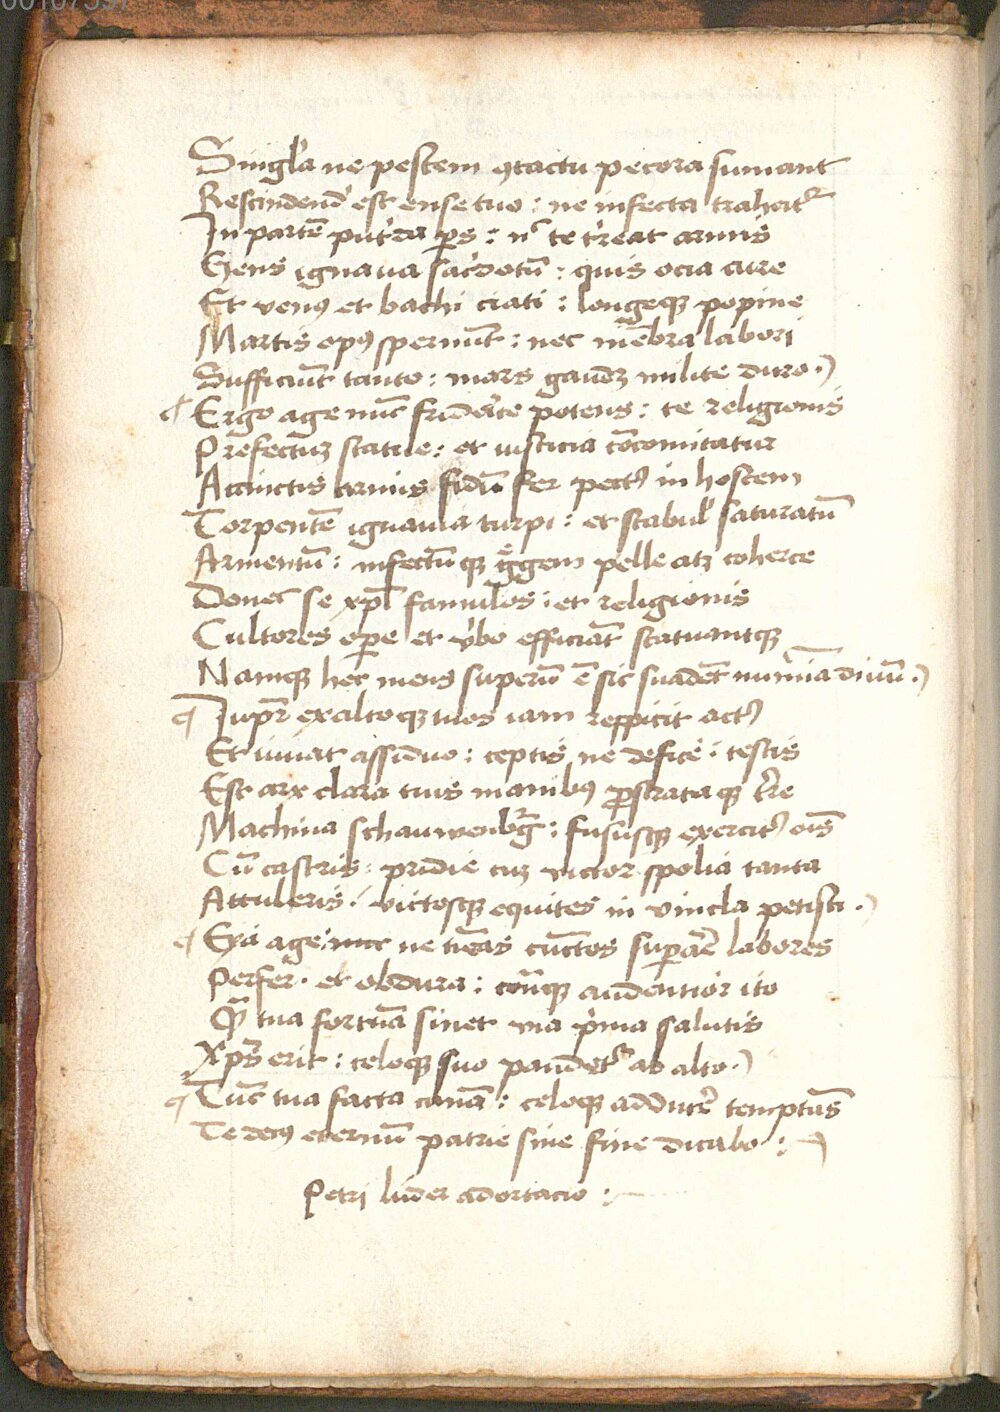 00107337
Singl'a ne pestem ꝯtactu pecora sumant
Rescindend' est ense tuo : ne infecta trahat᷑
In partē put'da ꝑs : nͨ te t'reat armis
Gens ignaua sac'dotū : quis ocia cure
Et venꝰ et bachi ciati : longeqꝫ popine
Martis opꝰ spernūt : nec mēbra labori
Sufficiūt tanto : mars gaudꝫ milite duro .)
¶ Ergo age nūc frider'ce potens : te religionis
Prefectuꝫ statue : et iusticia cōcomitatur
Accinctis armis fidū fer pectꝰ in hostem
Torpentē ignauia turpi : et stabul' saturatū
Armentū : infectūqꝫ g'gem pelle atqꝫ coherce
Donec se xp̄i famulos : et religionis
Cultores oꝑe et v'bo efficiāt statuantqꝫ
Namqꝫ hec mens superū ē sic suadēt numīa diuū .)
¶ Iup̄r ex altoqꝫ tuos iam respicit actꝰ
Et iuuat assiduo : ceptis ne defice : testis
Est arx clara tuis manibꝰ ꝓstrataqꝫ t're
Machina schauwenb'g : fususqꝫ exercitꝰ oīs
Cū castris : pridie cuꝫ victor spolia tanta
Attuleris : victosqꝫ equites in vincla petisti .)
¶ Eya age nunc ne timeas cūctos suꝑare labores
Perfer . et obdura : contraqꝫ audentior ito
Qua tua fortūa sinet via p'ma salutis
Xp̄s erit : celoqꝫ suo pandet᷑ ab alto .)
¶ Tūc tua facta canā : celoqꝫ adducere temptās
Te decꝰ eternū patrie sine fine dicabo :
Petri luder adortacio :